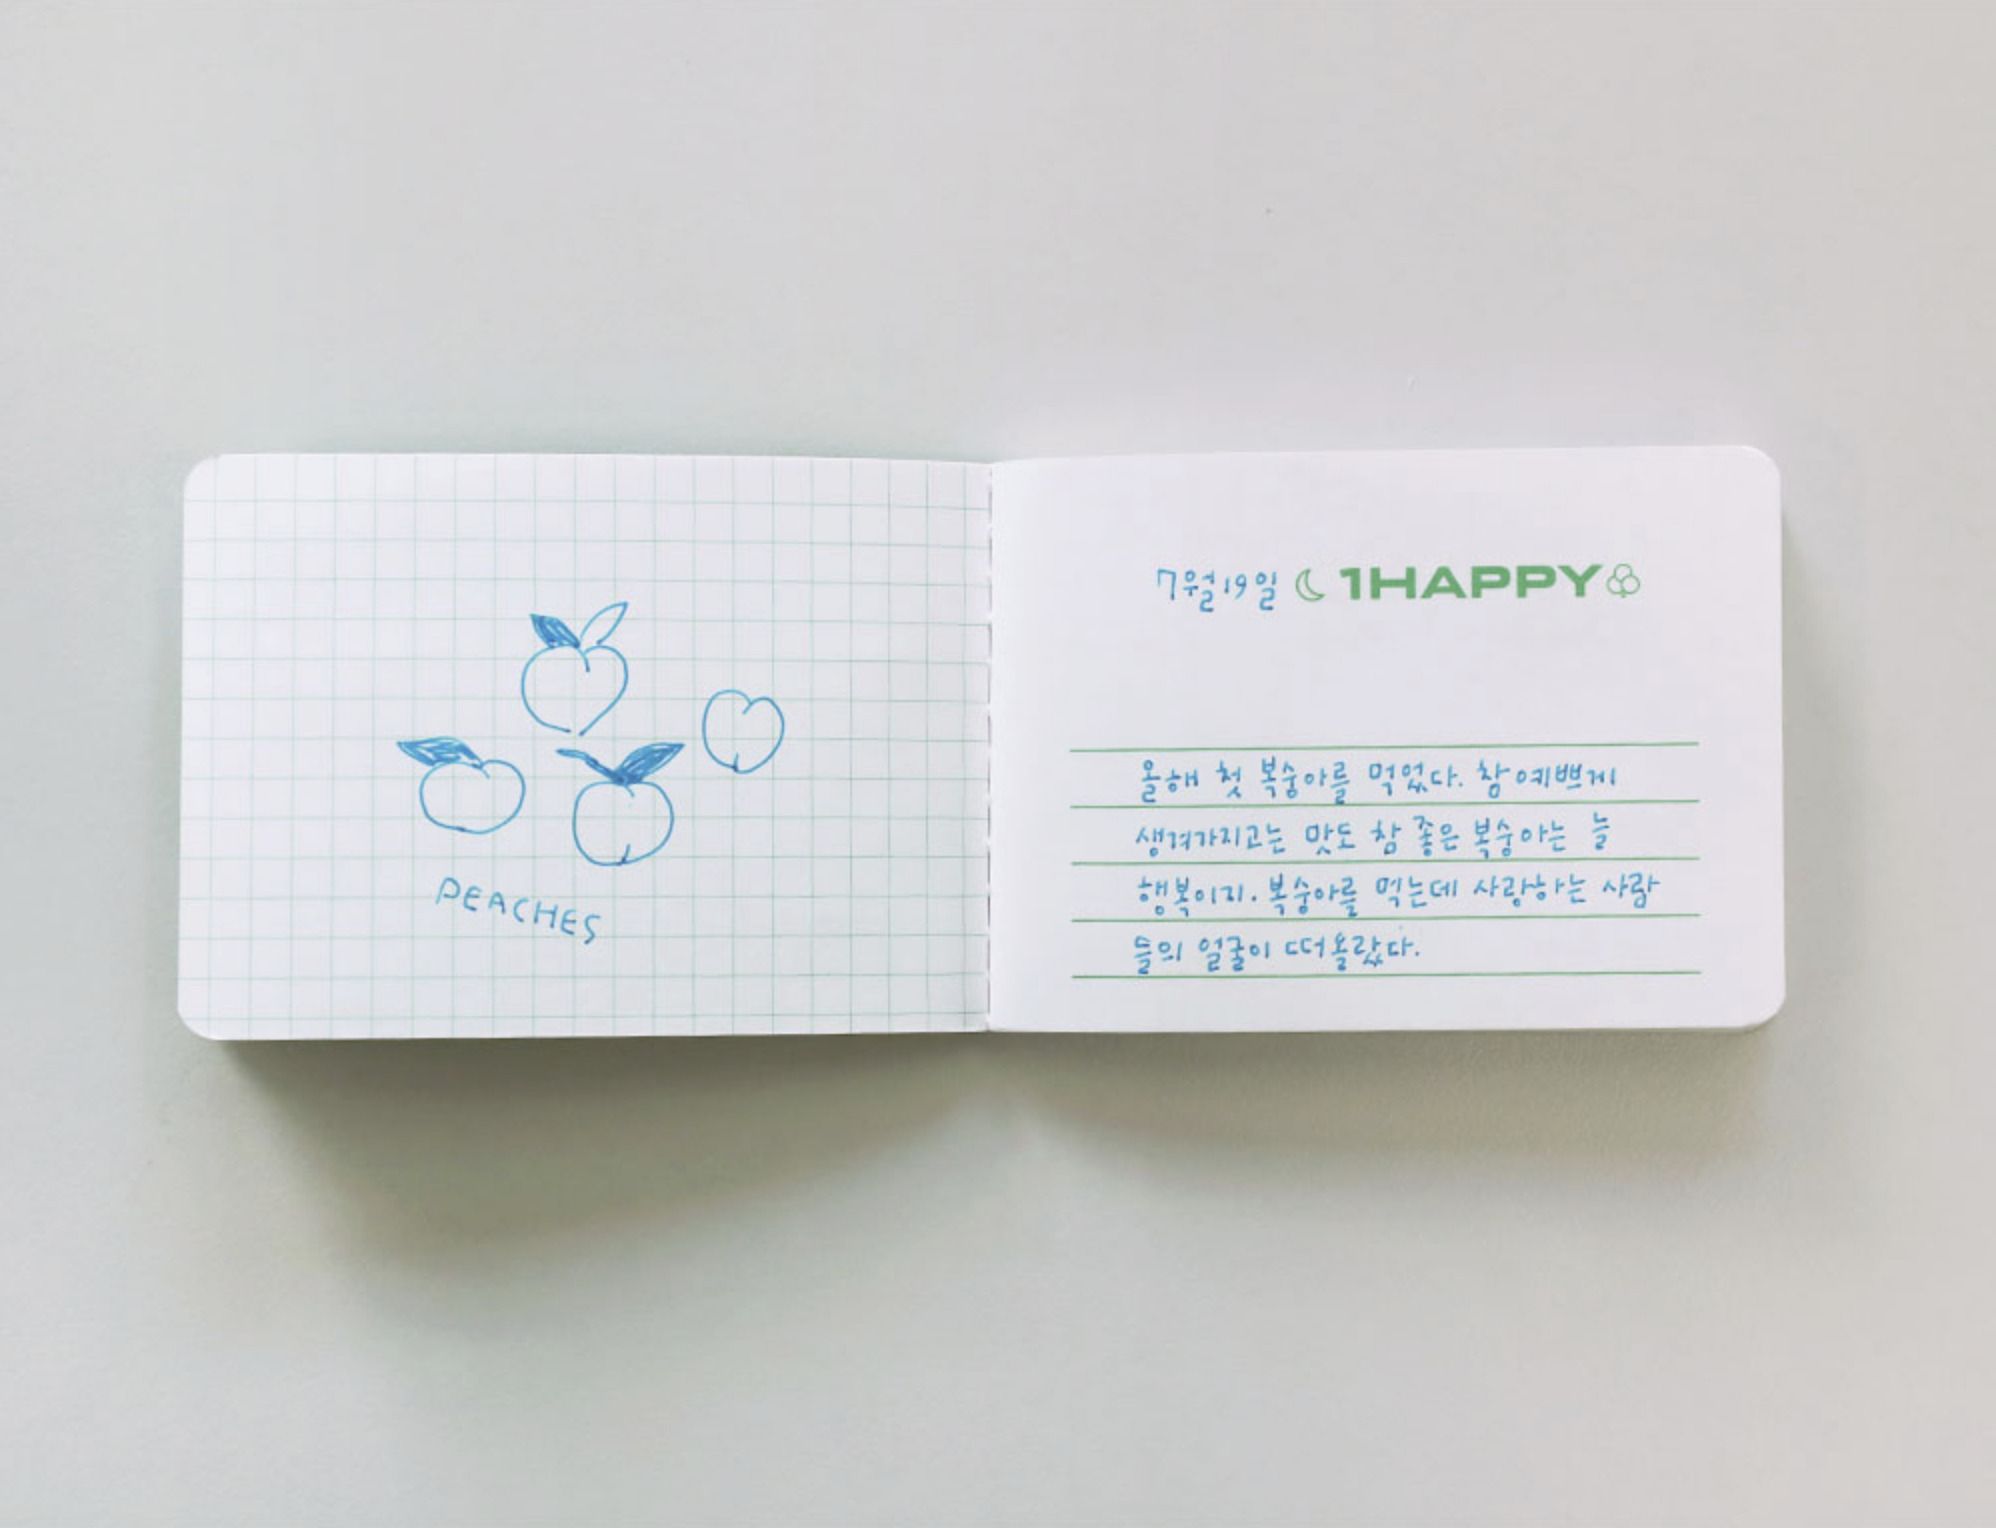 PEACHES
7월19일 1HAPPY
올해 첫 복숭아를 먹었다. 참 예쁘게
생겨가지고는 맛도 참 좋은 복숭아는 늘
행복이지. 복숭아를 먹는데 사랑하는 사람
들의 얼굴이 떠올랐다.